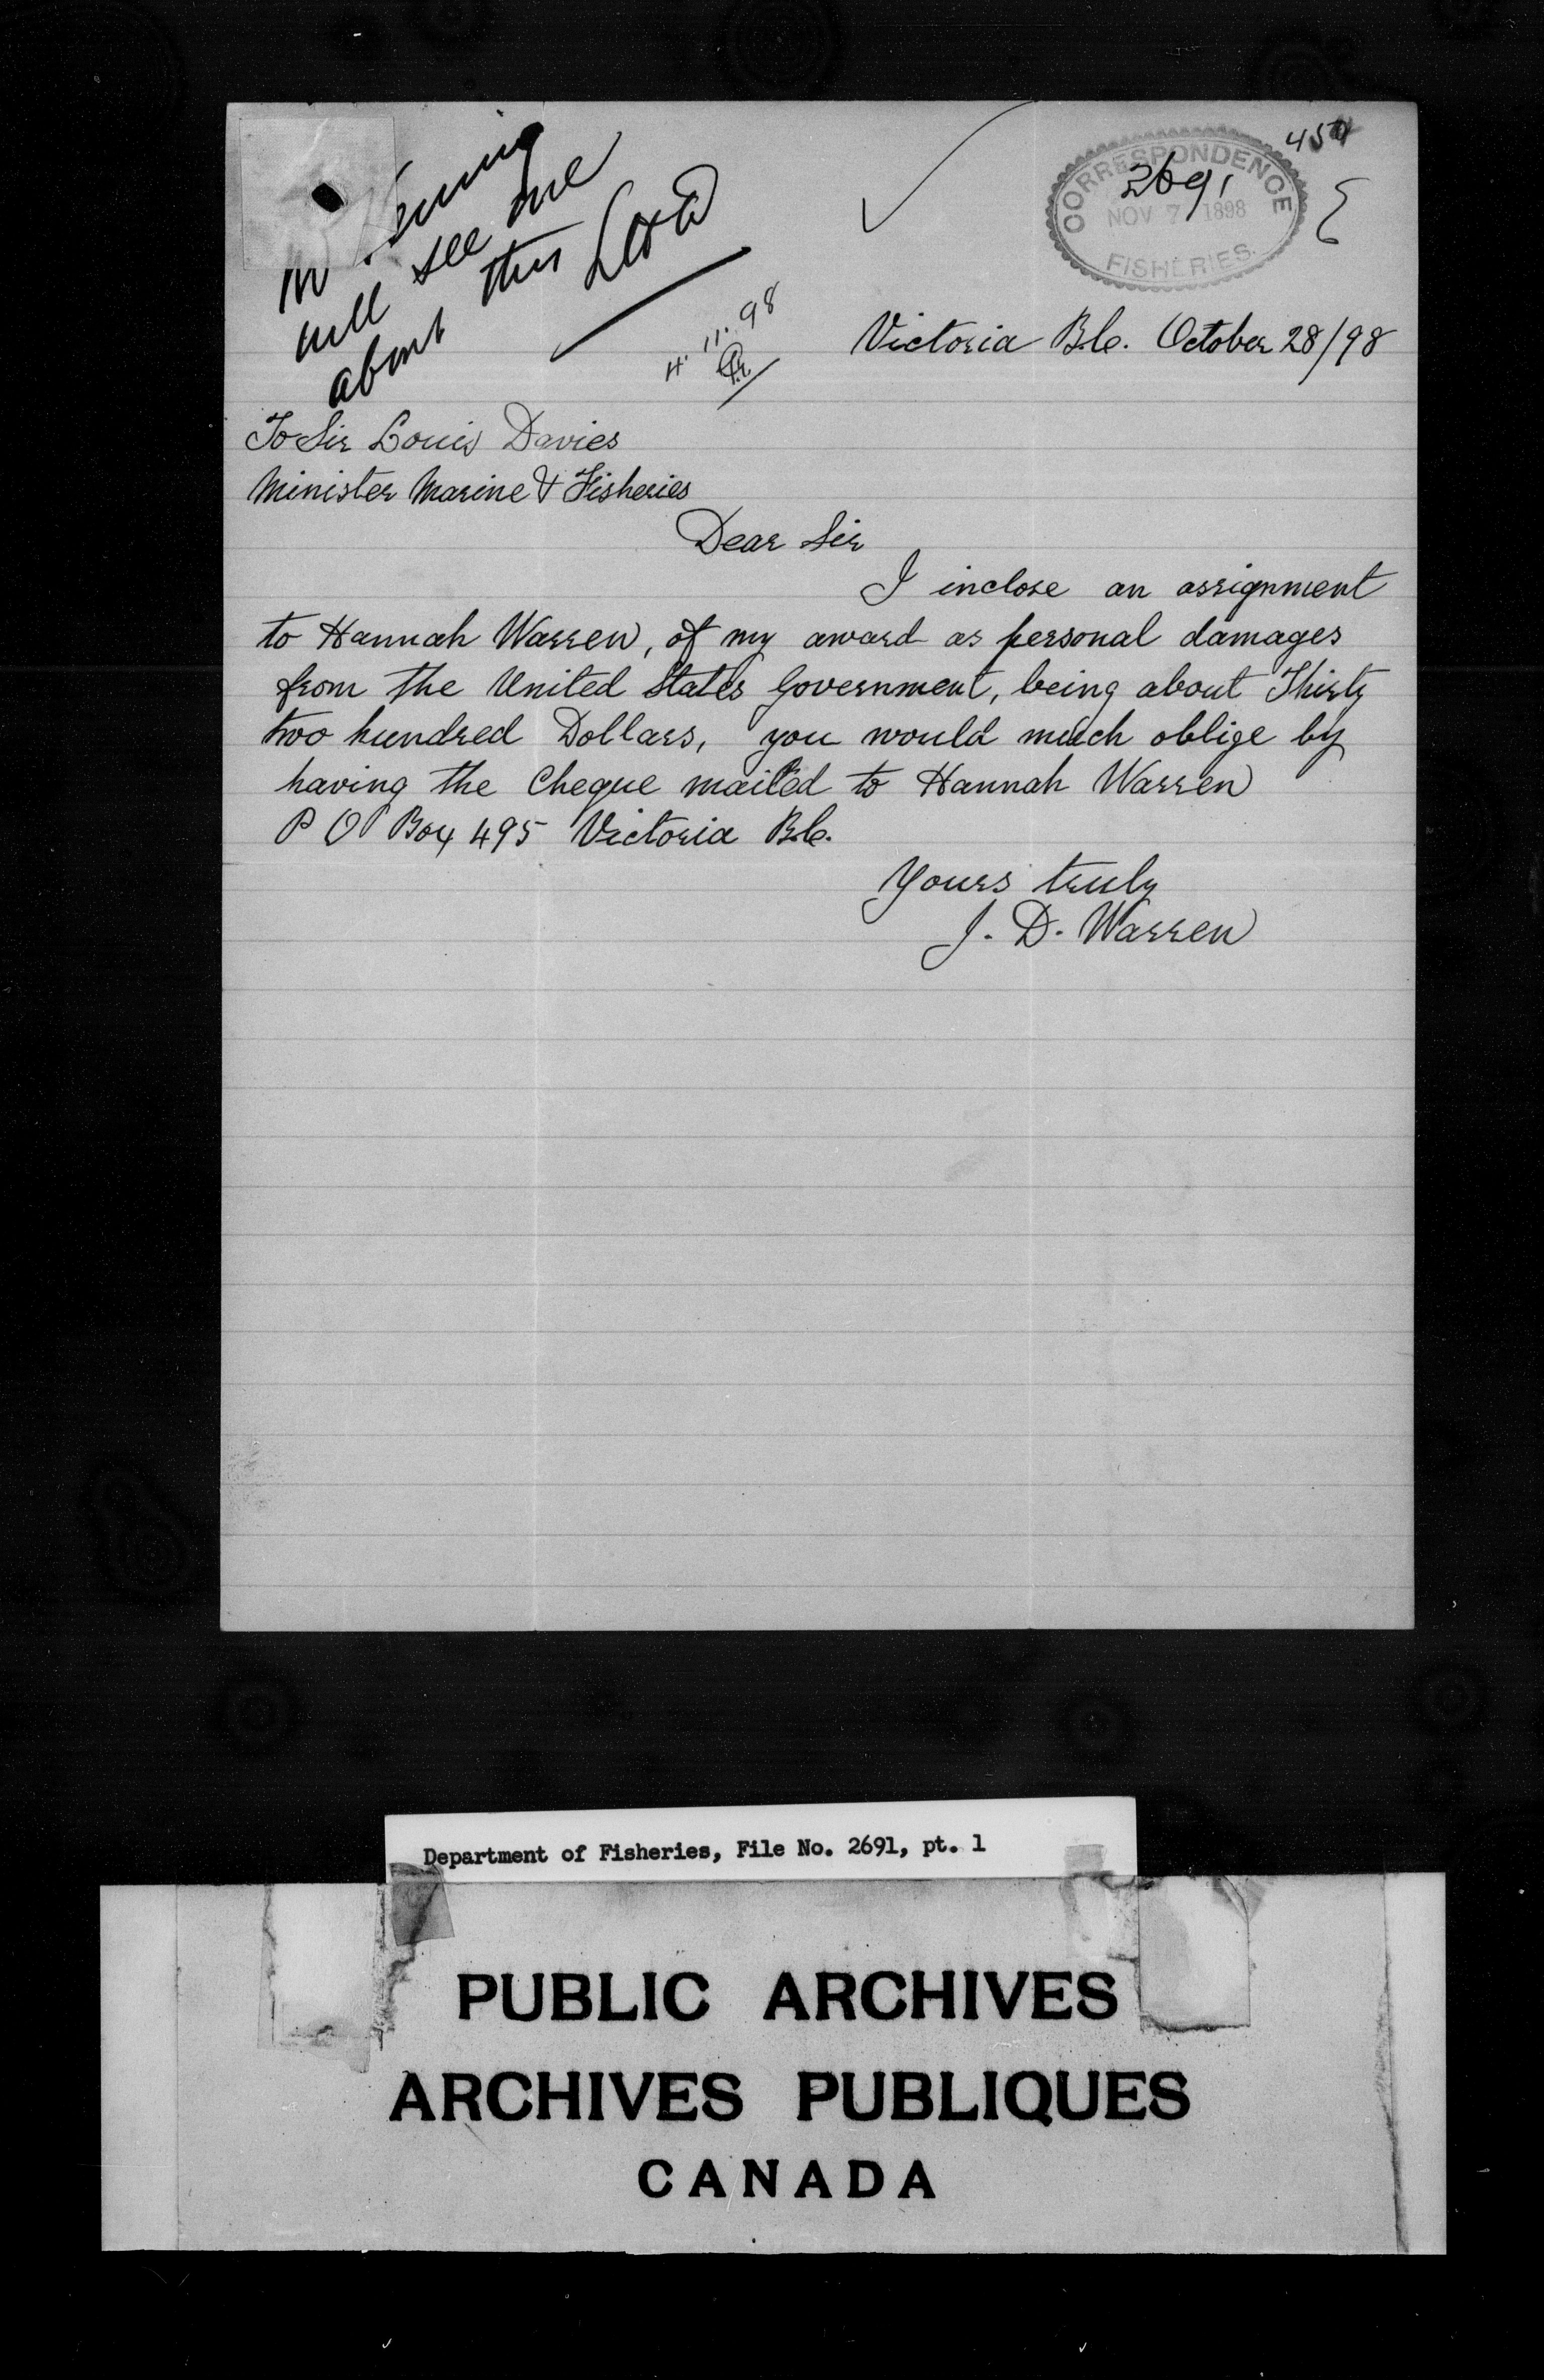 will see me
about this
4. 11. 98
CORRESPONDENCE
2691
NOV 7 1898
FISHERIES.
Victoria B.C. October 28/98
To Sir Louis Davies
Minister Marine & Fisheries
Dear Sir
I inclose an assignment
to Hannah Warren, of my award as personal damages
from the United States Government, being about Thirty
two hundred Dollars, you would much oblige by
having the Cheque mailed to Hannah Warren
P O Box 495 Victoria B.C.
Yours truly
J. D. Warren
Department of Fisheries, File No. 2691, pt. 1
PUBLIC ARCHIVES
ARCHIVES PUBLIQUES
CANADA